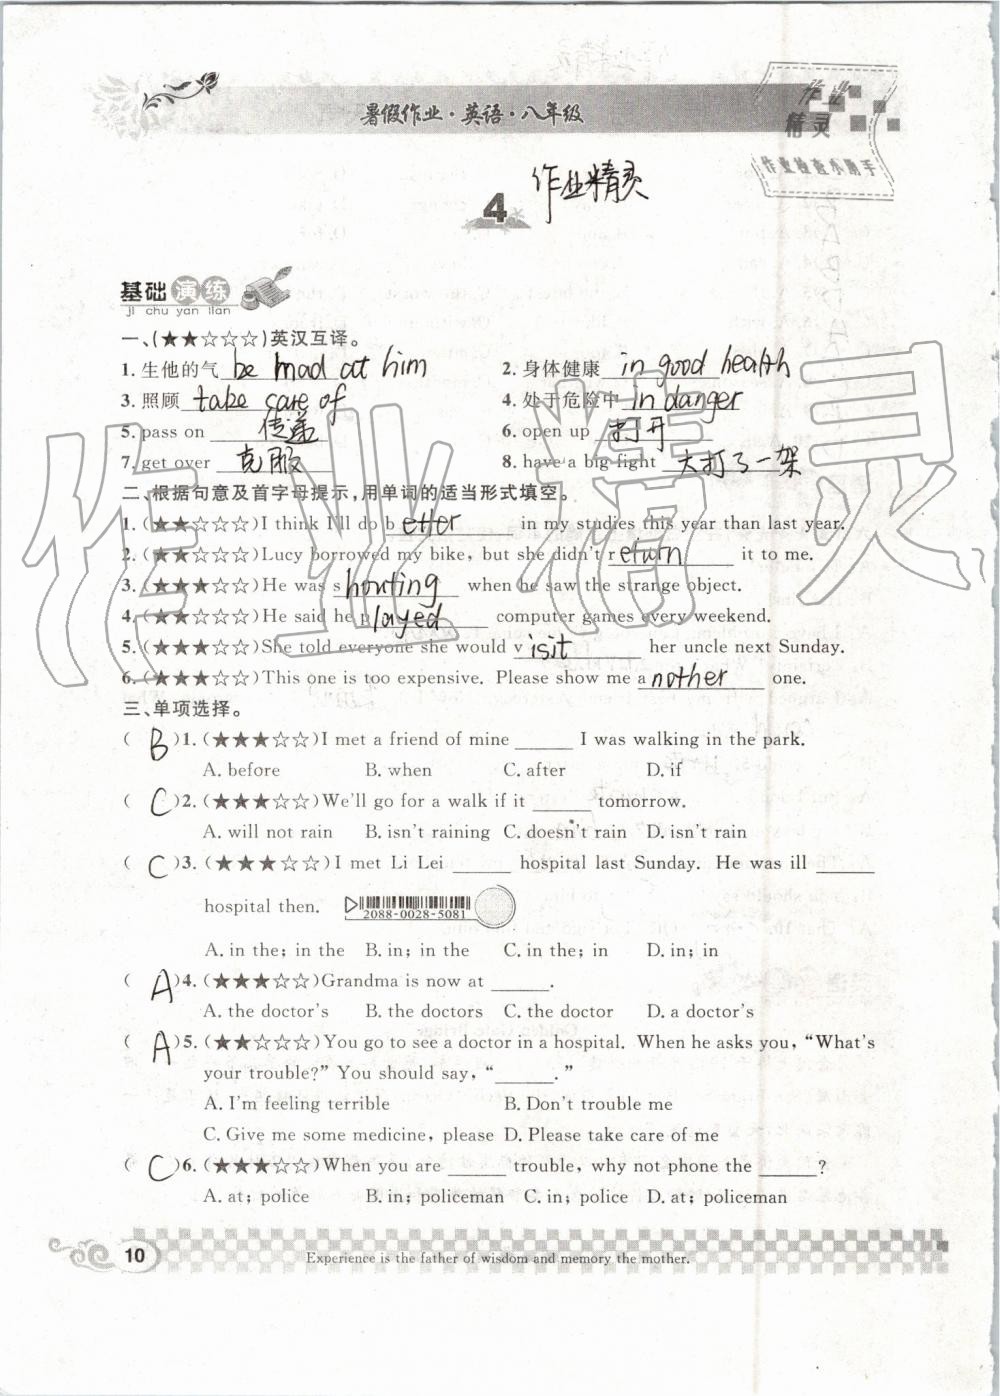 暑假作业·英语·八年级
作业
精灵
作业检查小助手
4 作业精灵
基础演练
ji chu yan lian
一、(★★☆☆☆)英汉互译。
1. 生他的气 be mad at him 2. 身体健康 in good health
3. 照顾 take care of 4. 处于危险中 in danger
5. pass on 传递 6. open up 打开
7. get over 克服 8. have a big fight 大打了一架
二、根据句意及首字母提示,用单词的适当形式填空。
1. (★★☆☆☆)I think I'll do better in my studies this year than last year.
2. (★★☆☆☆)Lucy borrowed my bike, but she didn't return it to me.
3. (★★★☆☆)He was shouting when he saw the strange object.
4. (★★☆☆☆)He said he played computer games every weekend.
5. (★★★☆☆)She told everyone she would visit her uncle next Sunday.
6. (★★★☆☆)This one is too expensive. Please show me another one.
三、单项选择。
( B )1. (★★★☆☆)I met a friend of mine ______ I was walking in the park.
A. before B. when C. after D. if
( C )2. (★★★☆☆)We'll go for a walk if it ______ tomorrow.
A. will not rain B. isn't raining C. doesn't rain D. isn't rain
( C )3. (★★★☆☆)I met Li Lei ______ hospital last Sunday. He was ill ______
hospital then. 2088-0028-5081
A. in the; in the B. in; in the C. in the; in D. in; in
( A )4. (★★★☆☆)Grandma is now at ______.
A. the doctor's B. the doctors C. the doctor D. a doctor's
( A )5. (★★☆☆☆)You go to see a doctor in a hospital. When he asks you, "What's
your trouble?" You should say, "______."
A. I'm feeling terrible B. Don't trouble me
C. Give me some medicine, please D. Please take care of me
( C )6. (★★★☆☆)When you are ______ trouble, why not phone the ______?
A. at; police B. in; policeman C. in; police D. at; policeman
10 Experience is the father of wisdom and memory the mother.
作业精灵